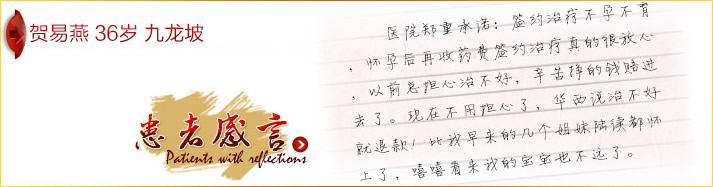 贺易燕 36岁 九龙坡
患者感言
Patients with reflections
医院郑重承诺：签约治疗不孕不育
，怀孕后再收药费签约治疗真的很放心
，以前总担心治不好，辛苦挣的钱赔进
去了。现在不用担心了，华西说治不好
就退款！比我早来的几个姐妹陆续都怀
上了，嘻嘻看来我的宝宝也不远了。